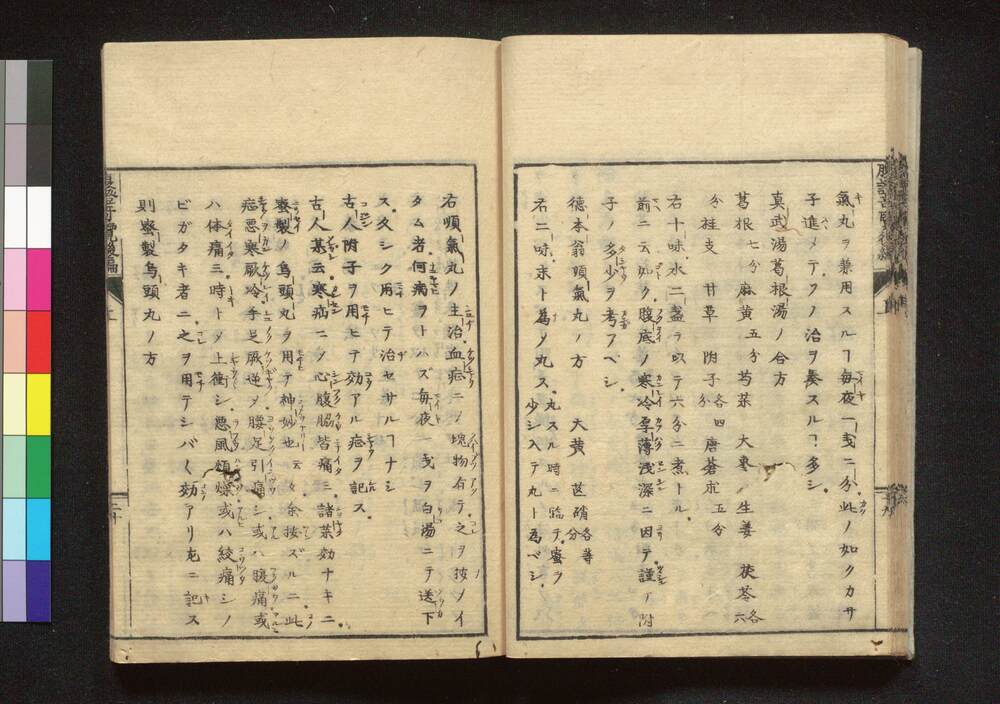 氣丸ヲ兼用スルヿ毎夜一戔ニ分此ノ如クカサ
子進メテソノ治ヲ奏スルヿ多シ
真武湯葛根湯ノ合方
葛根七分 麻黄五分 芍薬 大棗 生姜 茯苓各六
分 桂支 甘草 附子各四分 唐蒼朮五分
右十味水二盞ヲ以テ六分ニ煮トル
前ニ云如ク腹底ノ寒冷厚薄浅深ニ因テ謹テ附
子ノ多少ヲ考フベシ
徳本翁順氣丸ノ方 大黄 芒硝各等分
右二味末ト為メ丸ス丸スル時ニ臨テ蜜ヲ少シ入テ丸ト為ベシ
右順氣丸ノ主治血症ニノ塊物有テ之ヲ按ノイ
タム者何病ヲトハズ毎夜一戔ヲ白湯ニテ送下
ス久シク用ヒテ治セサルヿナシ
古人附子ヲ用ヒテ効アル症ヲ記ス
古人某云寒疝ニノ心腹脇皆痛ミ諸薬効ナキニ
蜜製ノ烏頭丸ヲ用テ神妙也云々余按ズルニ此
症悪寒厥冷手足厥逆ヲ腰足引痛シ或ハ腹痛或
ハ体痛ミ時トメ上衝シ悪風煩燥或ハ絞痛シノ
ビガタキ者ニ之ヲ用テシバ〱効アリ左ニ記ス
則蜜製烏頭丸ノ方
二十